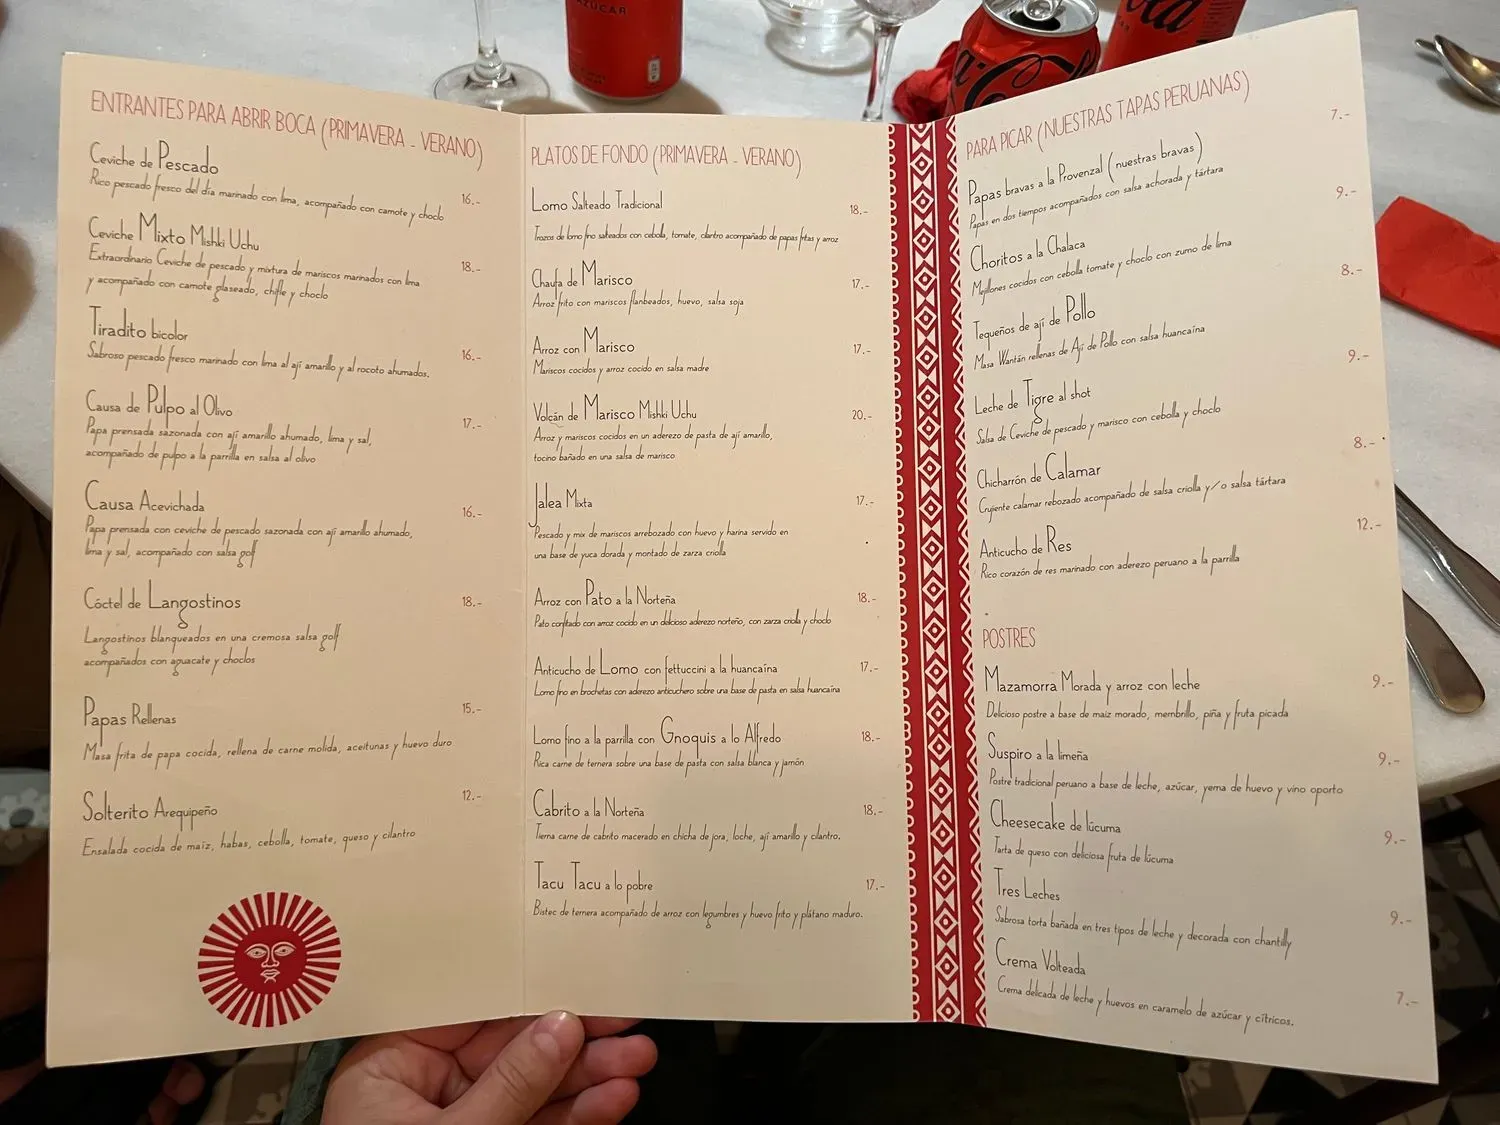 AZÚCAR
ENTRANTES PARA ABRIR BOCA (PRIMAVERA - VERANO)
Ceviche de Pescado 16.-
Rico pescado fresco del día marinado con lima, acompañado con camote y choclo
Ceviche Mixto Mishki Uchu 18.-
Extraordinario Ceviche de pescado y mixtura de mariscos marinados con lima
y acompañado con camote glaseado, chifle y choclo
Tiradito bicolor 16.-
Sabroso pescado fresco marinado con lima al ají amarillo y al rocoto ahumados.
Causa de Pulpo al Olivo 17.-
Papa prensada sazonada con ají amarillo ahumado, lima y sal,
acompañado de pulpo a la parrilla en salsa al olivo
Causa Acevichada 16.-
Papa prensada con ceviche de pescado sazonada con ají amarillo ahumado,
lima y sal, acompañado con salsa golf
Cóctel de Langostinos 18.-
Langostinos blanqueados en una cremosa salsa golf
acompañados con aguacate y choclos
Papas Rellenas 15.-
Masa frita de papa cocida, rellena de carne molida, aceitunas y huevo duro
Solterito Arequipeño 12.-
Ensalada cocida de maíz, habas, cebolla, tomate, queso y cilantro
PLATOS DE FONDO (PRIMAVERA - VERANO)
Lomo Salteado Tradicional 18.-
Trozos de lomo fino salteados con cebolla, tomate, cilantro acompañado de papas fritas y arroz
Chaufa de Marisco 17.-
Arroz frito con mariscos flanbeados, huevo, salsa soja
Arroz con Marisco 17.-
Mariscos cocidos y arroz cocido en salsa madre
Volcán de Marisco Mishki Uchu 20.-
Arroz y mariscos cocidos en un aderezo de pasta de ají amarillo,
tocino bañado en una salsa de marisco
Jalea Mixta 17.-
Pescado y mix de mariscos arrebozado con huevo y harina servido en
una base de yuca dorada y montado de zarza criolla
Arroz con Pato a la Norteña 18.-
Pato confitado con arroz cocido en un delicioso aderezo norteño, con zarza criolla y choclo
Anticucho de Lomo con fettuccini a la huancaína 17.-
Lomo fino en brochetas con aderezo anticuchero sobre una base de pasta en salsa huancaína
Lomo fino a la parrilla con Gnoquis a lo Alfredo 18.-
Rica carne de ternera sobre una base de pasta con salsa blanca y jamón
Cabrito a la Norteña 18.-
Tierna carne de cabrito macerado en chicha de jora, loche, ají amarillo y cilantro.
Tacu Tacu a lo pobre 17.-
Bistec de ternera acompañado de arroz con legumbres y huevo frito y plátano maduro.
PARA PICAR (NUESTRAS TAPAS PERUANAS)
Papas bravas a la Provenzal (nuestras bravas) 7.-
Papas en dos tiempos acompañados con salsa achorada y tártara
Choritos a la Chalaca 9.-
Mejillones cocidos con cebolla tomate y choclo con zumo de lima
Tequeños de ají de Pollo 8.-
Masa Wantán rellenas de Ají de Pollo con salsa huancaína
Leche de Tigre al shot 9.-
Salsa de Ceviche de pescado y marisco con cebolla y choclo
Chicharrón de Calamar 8.-
Crujiente calamar rebozado acompañado de salsa criolla y/o salsa tártara
Anticucho de Res 12.-
Rico corazón de res marinado con aderezo peruano a la parrilla
POSTRES
Mazamorra Morada y arroz con leche 9.-
Delicioso postre a base de maíz morado, membrillo, piña y fruta picada
Suspiro a la limeña 9.-
Postre tradicional peruano a base de leche, azúcar, yema de huevo y vino oporto
Cheesecake de lúcuma 9.-
Tarta de queso con deliciosa fruta de lúcuma
Tres Leches 9.-
Sabrosa torta bañada en tres tipos de leche y decorada con chantilly
Crema Volteada 7.-
Crema delicada de leche y huevos en caramelo de azúcar y cítricos.